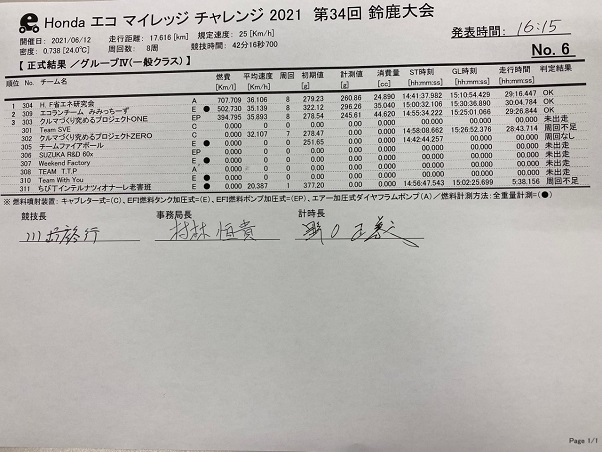 Honda エコ マイレッジ チャレンジ 2021 第34回 鈴鹿大会
発表時間: 16:15
開催日: 2021/06/12 走行距離: 17.616 [km] 規定速度: 25 [Km/h]
密度: 0.738 [24.0℃] 周回数: 8周 競技時間: 42分16秒700
No. 6
【 正式結果 /グループⅣ(一般クラス) 】
順位 No. チーム名 燃費 平均速度 周回 初期値 計測値 消費量 ST時刻 GL時刻 走行時間 判定結果
[km/l] [Km/h] [g] [g] [cc] [hh:mm:ss] [hh:mm:ss] [hh:mm:ss]
1 304 H.F省エネ研究会 A 707.709 36,106 8 279.23 260.86 24.890 14:41:37.982 15:10:54.429 29:16.447 OK
2 309 エコランチーム みみっちーず E ● 502.730 35.139 8 322.12 296.26 35.040 15:00:32.106 15:30:36.890 30:04.784 OK
3 303 クルマづくり究めるプロジェクトONE EP 394.795 35,893 8 278.54 245.61 44.620 14:55:34.222 15:25:01.066 29:26.844 OK
301 Team SVE C 0.000 0.000 0 0.00 0.00 0.000 未出走
302 クルマづくり究めるプロジェクトZERO C 0.000 32,107 7 278.47 0.00 0.000 14:58:08.662 15:26:52.376 28:43.714 周回不足
305 チームファイアボール E ● 0.000 0.000 0 251.65 0.00 0.000 14:42:44.257 周回なし
306 SUZUKA R&D 60x EP 0.000 0.000 0 0.00 0.00 0.000 未出走
307 Weekend Factory E ● 0.000 0.000 0 0.00 0.00 0.000 未出走
308 TEAM T.T.P A 0.000 0.000 0 0.00 0.00 0.000 未出走
310 Team With You E ● 0.000 0.000 0 0.00 0.00 0.000 未出走
311 ちびTインテルナツィオナーレ老害班 E ● 0.000 20,387 1 377.20 0.00 0.000 14:56:47.543 15:02:25.699 5:38.156 周回不足
※ 燃料噴射装置: キャブレター式=(C)、EFI燃料タンク加圧式=(E)、EFI燃料ポンプ加圧式=(EP)、エアー加圧式ダイヤフラムポンプ(A) /燃料計測方法: 全重量計測=(●)
競技長 事務局長 計時長
村林 恒貴
Page 1/1